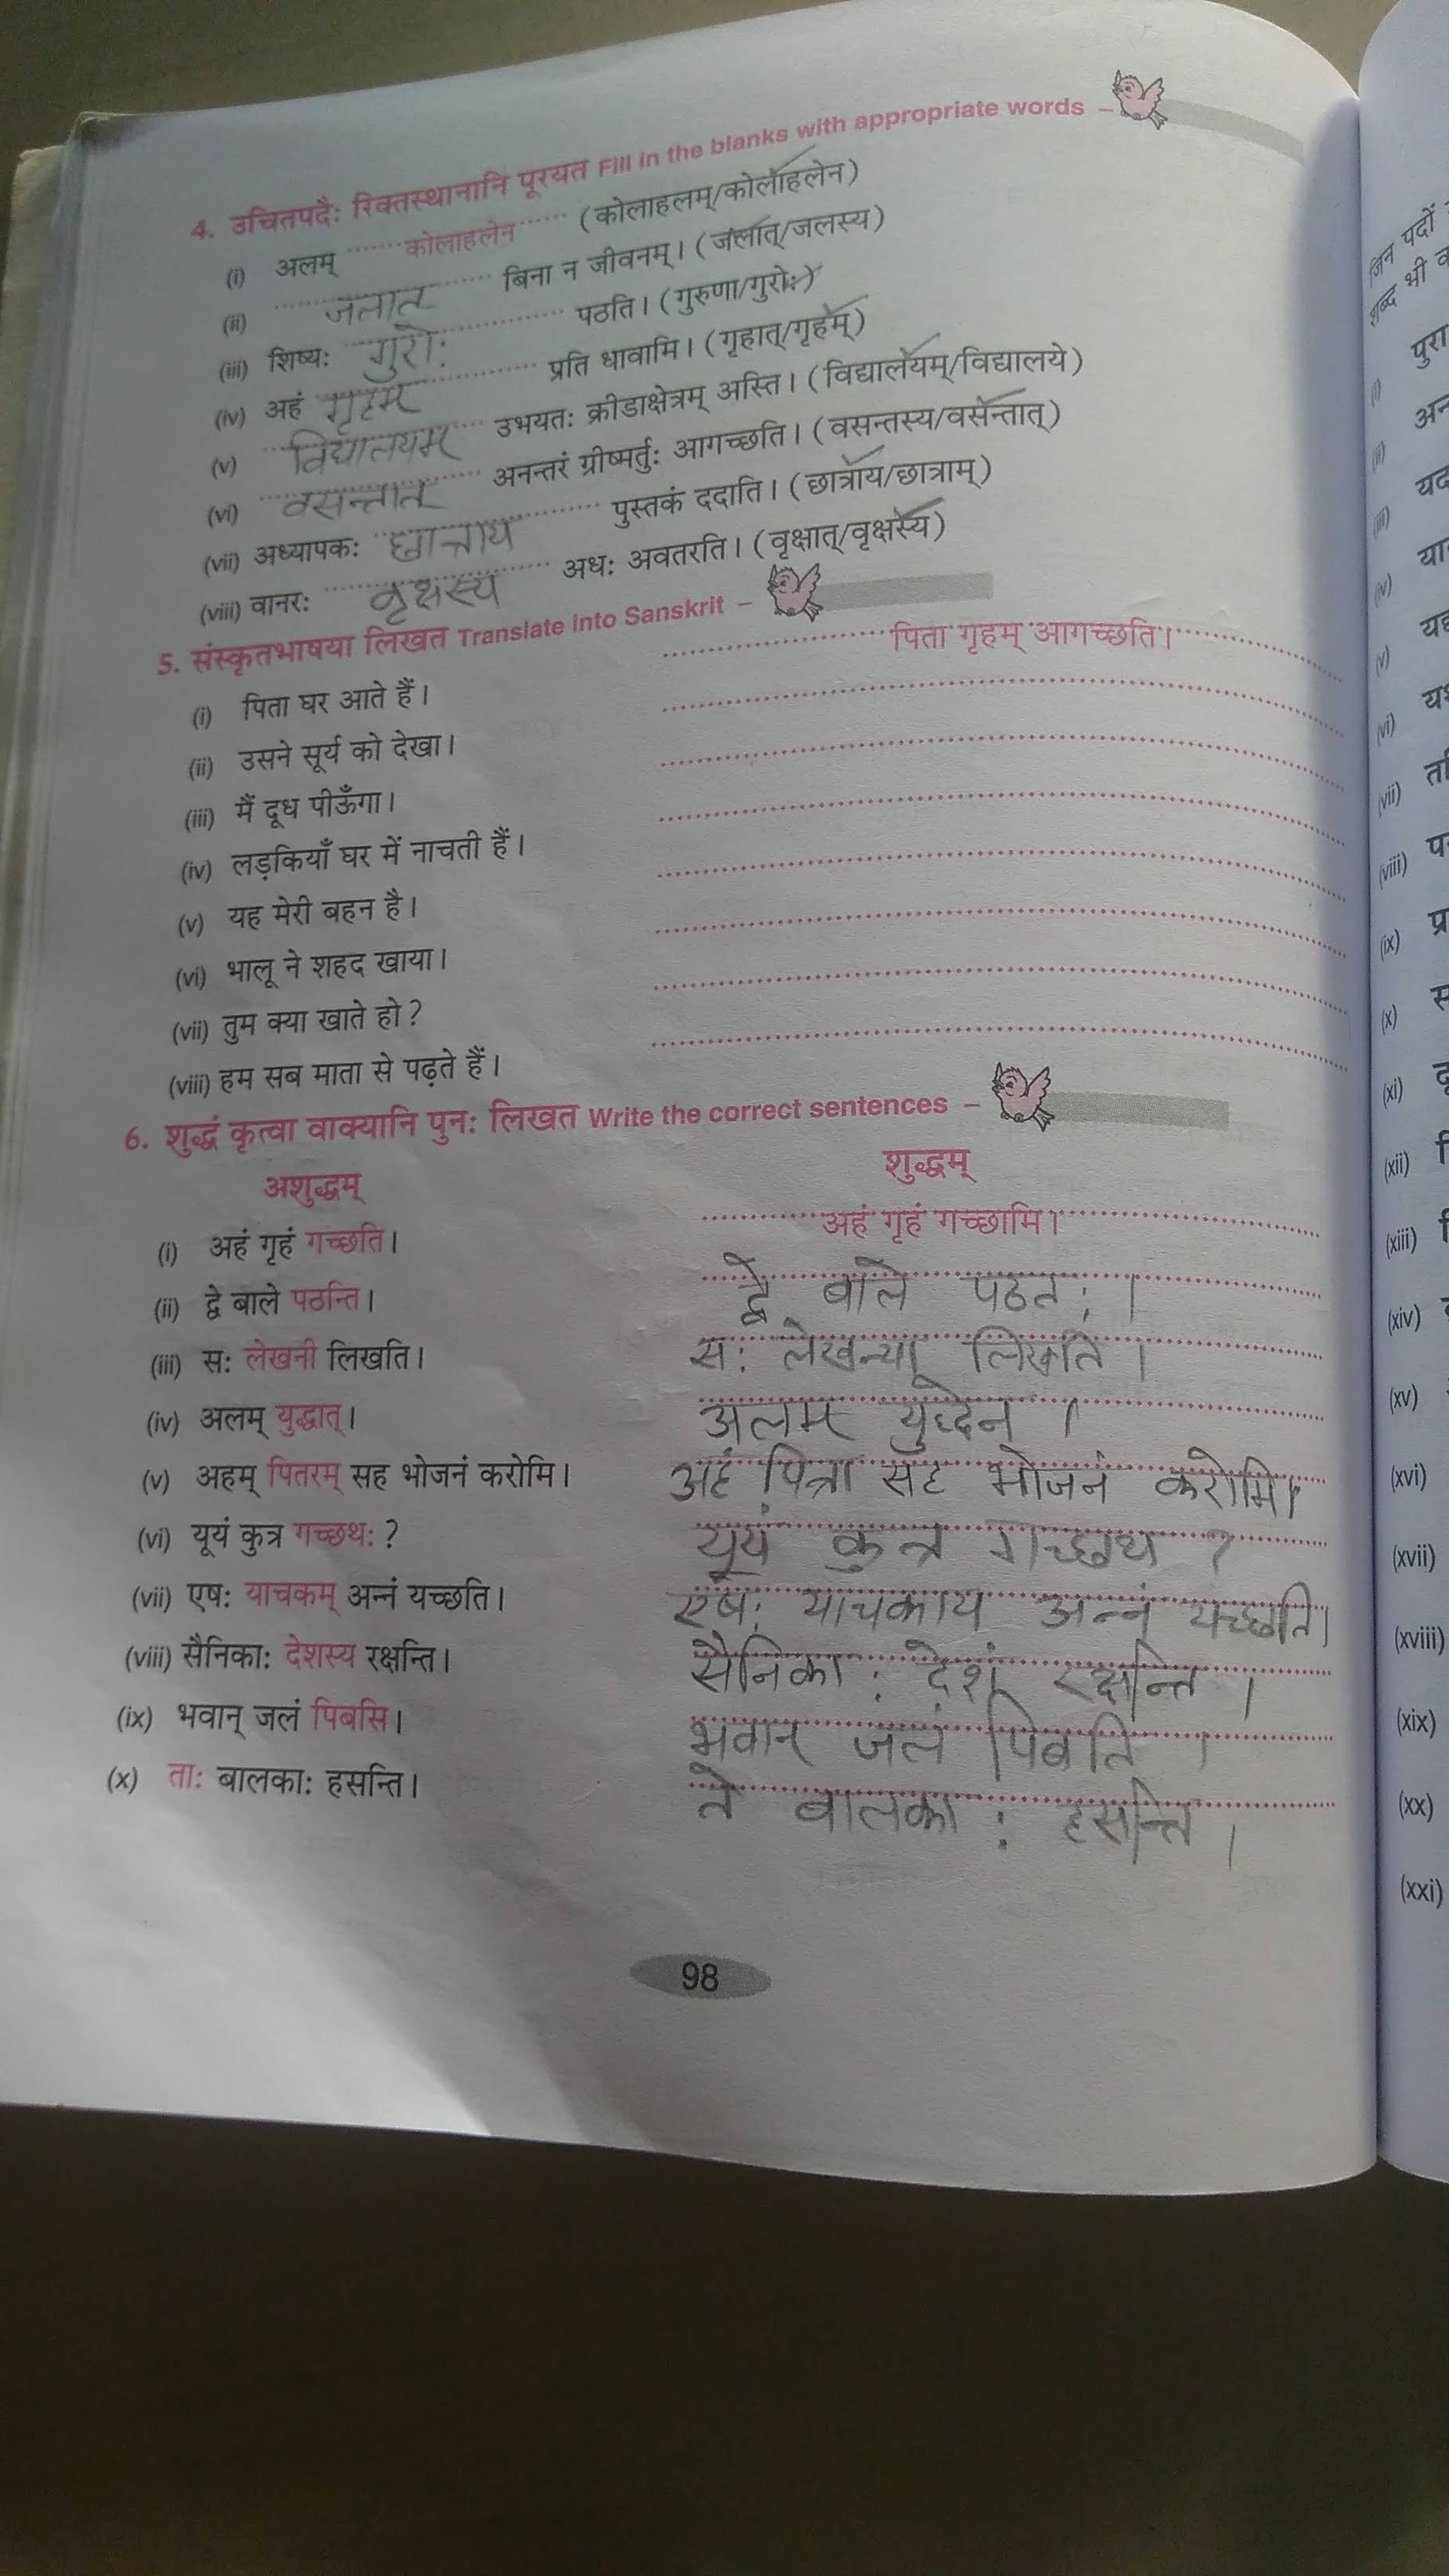 4. उचितपदैः रिक्तस्थानानि पूरयत Fill in the blanks with appropriate words –
(i) अलम् कोलाहलेन (कोलाहलम्/कोलाहलेन)
(ii) जलात् बिना न जीवनम्। (जलात्/जलस्य)
(iii) शिष्यः गुरोः पठति। (गुरुणा/गुरोः)
(iv) अहं गृहम् प्रति धावामि। (गृहात्/गृहम्)
(v) विद्यालयम् उभयतः क्रीडाक्षेत्रम् अस्ति। (विद्यालयम्/विद्यालये)
(vi) वसन्तात् अनन्तरं ग्रीष्मर्तुः आगच्छति। (वसन्तस्य/वसन्तात्)
(vii) अध्यापकः छात्राय पुस्तकं ददाति। (छात्राय/छात्राम्)
(viii) वानरः वृक्षस्य अधः अवतरति। (वृक्षात्/वृक्षस्य)
5. संस्कृतभाषया लिखत Translate into Sanskrit –
(i) पिता घर आते हैं। पिता गृहम् आगच्छति।
(ii) उसने सूर्य को देखा।
(iii) मैं दूध पीऊँगा।
(iv) लड़कियाँ घर में नाचती हैं।
(v) यह मेरी बहन है।
(vi) भालू ने शहद खाया।
(vii) तुम क्या खाते हो?
(viii) हम सब माता से पढ़ते हैं।
6. शुद्धं कृत्वा वाक्यानि पुनः लिखत Write the correct sentences –
अशुद्धम् शुद्धम्
(i) अहं गृहं गच्छति। अहं गृहं गच्छामि।
(ii) द्वे बाले पठन्ति। द्वे बाले पठतः।
(iii) सः लेखनी लिखति। सः लेखन्या लिखति।
(iv) अलम् युद्धात्। अलम् युद्धेन।
(v) अहम् पितरम् सह भोजनं करोमि। अहं पित्रा सह भोजनं करोमि।
(vi) यूयं कुत्र गच्छथः? यूयं कुत्र गच्छथ ?
(vii) एषः याचकम् अन्नं यच्छति। एषः याचकाय अन्नं यच्छति।
(viii) सैनिकाः देशस्य रक्षन्ति। सैनिकाः देशं रक्षन्ति।
(ix) भवान् जलं पिबसि। भवान् जलं पिबति।
(x) ताः बालकाः हसन्ति। ते बालकाः हसन्ति।
98
जिन पदों
शब्द भी
(i)
(ii)
(iii)
(iv)
(v)
(vi)
(vii)
(viii)
(ix)
(x)
(xi)
(xii)
(xiii)
(xiv)
(xv)
(xvi)
(xvii)
(xviii)
(xix)
(xx)
(xxi)